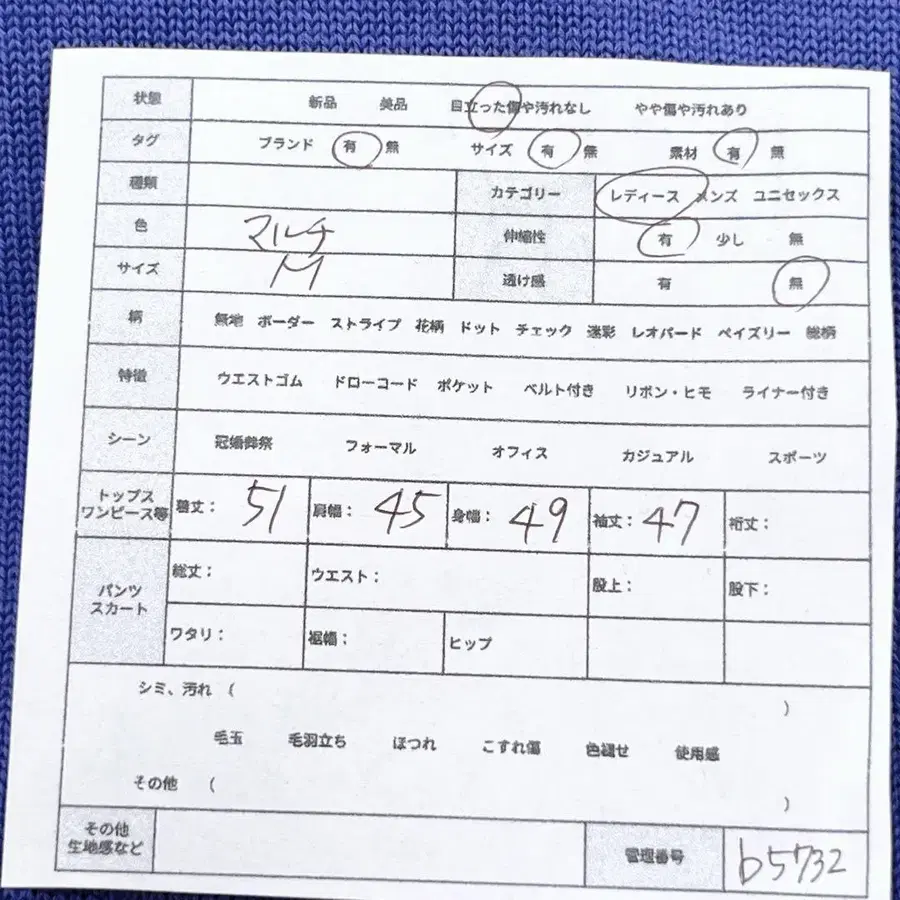 状態 新品 美品 目立った傷や汚れなし やや傷や汚れあり
タグ ブランド 有 無 サイズ 有 無 素材 有 無
種類 カテゴリー レディース メンズ ユニセックス
色 マルチ 伸縮性 有 少し 無
サイズ M 透け感 有 無
柄 無地 ボーダー ストライプ 花柄 ドット チェック 迷彩 レオパード ペイズリー 総柄
特徴 ウエストゴム ドローコード ポケット ベルト付き リボン・ヒモ ライナー付き
シーン 冠婚葬祭 フォーマル オフィス カジュアル スポーツ
トップス
ワンピース等 着丈: 51 肩幅: 45 身幅: 49 袖丈: 47 裄丈:
パンツ
スカート 総丈: ウエスト: 股上: 股下:
ワタリ: 裾幅: ヒップ
シミ、汚れ ( )
毛玉 毛羽立ち ほつれ こすれ傷 色褪せ 使用感
その他 ( )
その他
生地感など 管理番号 b5732